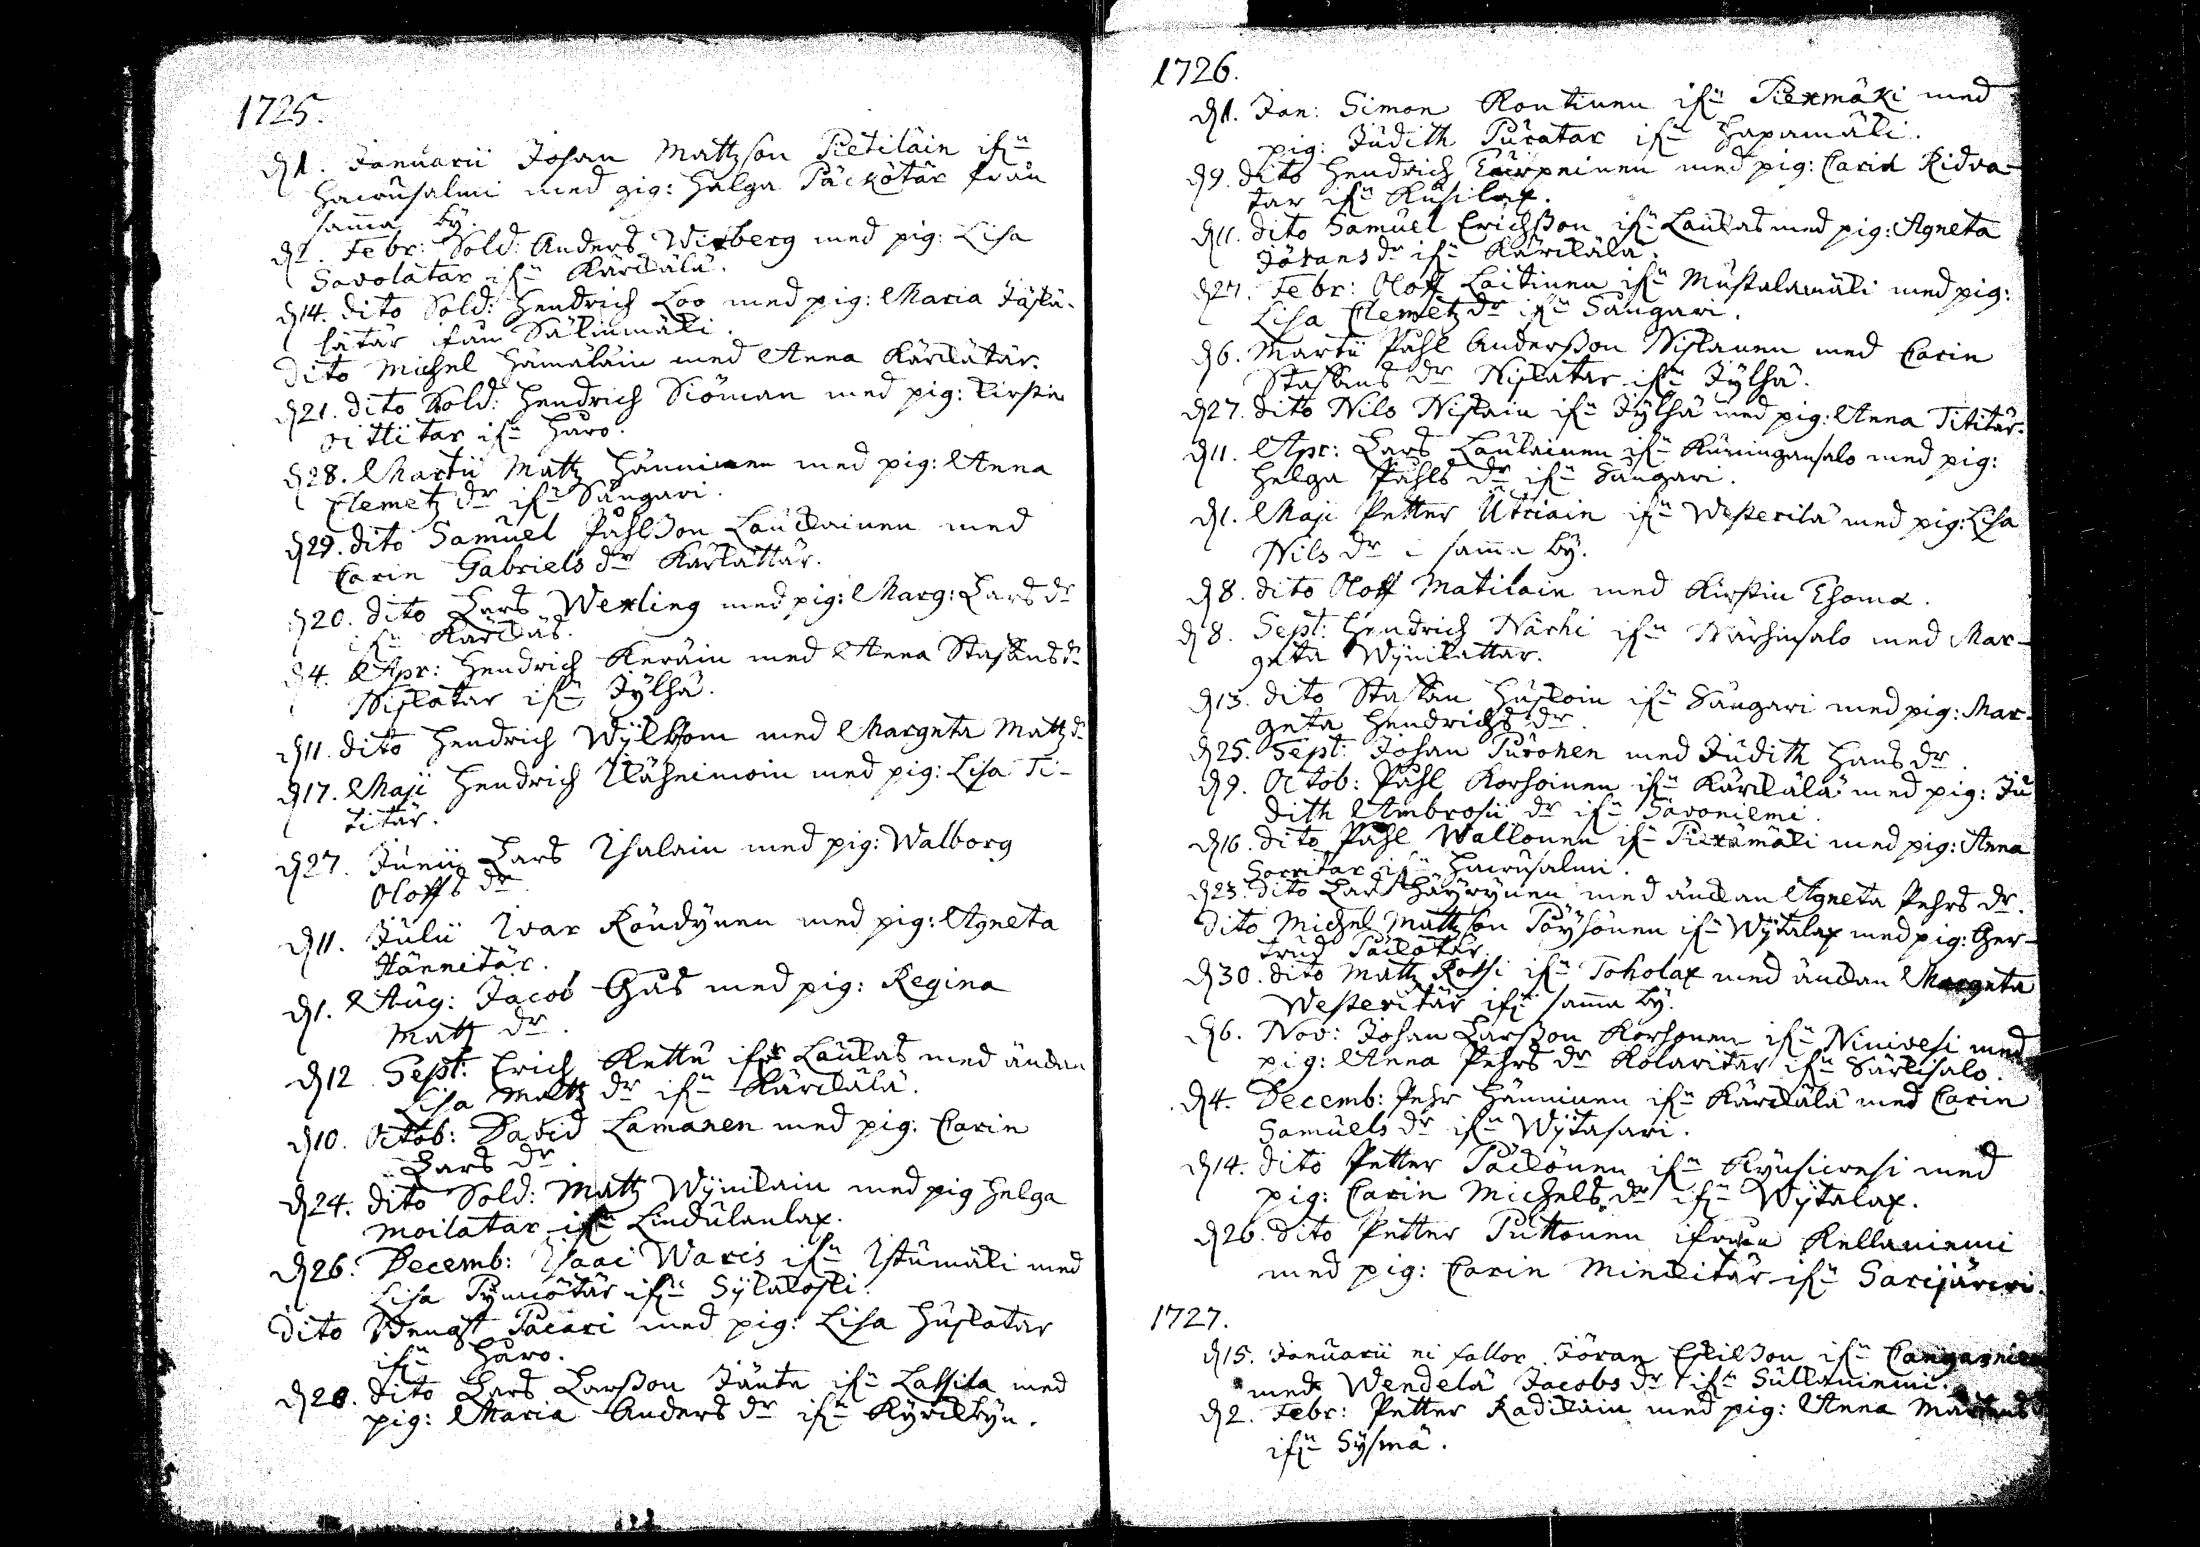 1725.
d 1. Januarii Johan Mattzson Pietiläin ifn
Haurusalmi med pig: Helga Päckötär från
samma by.
d 1. Febr: Sold: Anders Wixberg med pig: Lisa
Savolatar ifn Kärckälä.
d 14. dito Sold: Hendrich Loo med pig: Maria Jäske-
dito Michel Hämäläin med Anna Kärckätär.
d 21. dito Sold: Hendrich Siöman med pig: Kirstin
ifn Haro.
d 28. Martii Mattz Hänninen med pig: Anna
Clemetz dr ifn Sångari.
d 29. dito Samuel Påhlsson Lauckainen med
Carin Gabriels dr Kärkättär.
d 20. dito Lars Wexling med pig: Marg: Lars dr
ifn
d 4. Apr: Hendrich Keräin med Anna Staffans dr
Niskatar ifn Jylhä.
d 11. dito Hendrich Wylkkom med Margeta Mattz dr
d 17. Maji Hendrich Rähnimoin med pig: Lisa Ti-
titär.
d 27. Junii Lars Ihalain med pig: Walborg
Oloffs dr.
d 11. Julii Ivar Röndynen med pig: Agneta
Hännitär.
d 1. Aug: Jacob Gus med pig: Regina
Mattz dr.
d 12 Sept: Erich Kettu ifrn Laukas med änckan
Lisa Mattz dr ifn Kärckälä.
d 10. Octob: David Lamanen med pig: Carin
Lars dr.
d 24. dito Sold: Mattz Wynikain med pig Helga
Moilatar ifn Lindulanlax.
d 26. Decemb: Isaac Waris ifn Istumäki med
Lisa Pynnötär ifn Sylkkoski.
Dito Bengt Pacari med pig: Lisa Huskatar
ifn Haro.
d 28. dito Lars Larsson Jäntu ifn Lassila med
pig: Maria Anders dr ifn Kyrckbyn.
1726.
d 1. Jan: Simon Kontinen ifn Piexmäki med
pig: Judith Puratar ifn Hapamäki.
d 9. dito Hendrich Kärpeinen med pig: Carin Ridva-
tar ifn Kusilax.
d 11. dito Samuel Erichsson ifn Laukas med pig: Agneta
Jörans dr ifn Kärckälä.
d 27. Febr: Oloff Laitinen ifn Mustalamäki med pig:
Lisa Clemetz dr ifn Sångari.
d 6. Martii Påhl Andersson Niskanen med Carin
Staffans dr Niskatar ifn Jylhä.
d 27. dito Nils Niskain ifn Jylhä med pig: Anna Tititär.
d 11. Apr: Lars Laukainen ifn Kuningansalo med pig:
Helga Påhls dr ifn Sångari.
d 1. Maji Petter Utriain ifn Westerilä med pig: Lisa
Nils dr i samma by.
d 8. dito Oloff Matilain med Kirstin Thoma.
d 8. Sept: Hendrich Närhi ifn Närhinsalo med Mar-
geta Wynikattar.
d 13. dito Staffan Huskoin ifn Sångari med pig: Mar-
geta Hendrichs dr.
d 25. Sept: Johan Purohen med Judith Hans dr.
d 9. Octob: Påhl Korhoinen ifn Kärckälä med pig: Ju
dith Ambrosii dr ifn Savoniemi.
d 16. dito Påhl Wallonen ifn Piexämäki med pig: Anna
Sorritar ifn Haurusalmi.
d 23. dito Lars Häyrynen med änckan Agneta Pehrs dr.
dito Michel Mattzson Pöyhönen ifn Wytalax med pig: Ger-
trud Päckätär.
d 30. dito Mattz Rossi ifn Toholax med änckan Margeta
Westeritär ifn samma by.
d 6. Nov: Johan Larsson Korhonen ifn Ninivesi med
pig: Anna Pehrs dr Kolaritar ifn Särkisalo.
d 4. Decemb: Pehr Hänninen ifn Kärckälä med Carin
Samuels dr ifn Wytasari.
d 14. dito Petter Päckönen ifn Kynsivesi med
pig: Carin Michels dr ifn Wytalax.
d 26. dito Petter Puttonen ifrån Kellaniemi
med pig: Carin Minckitär ifn Sarijärwi.
1727.
d 15. Januarii ni fallor Jöran Eskilsson ifn Cangasniemi
med Wendela Jacobs dr ifn Sullaniemi.
d 2. Febr: Petter Radikain med pig: Anna
ifn Sysmä.